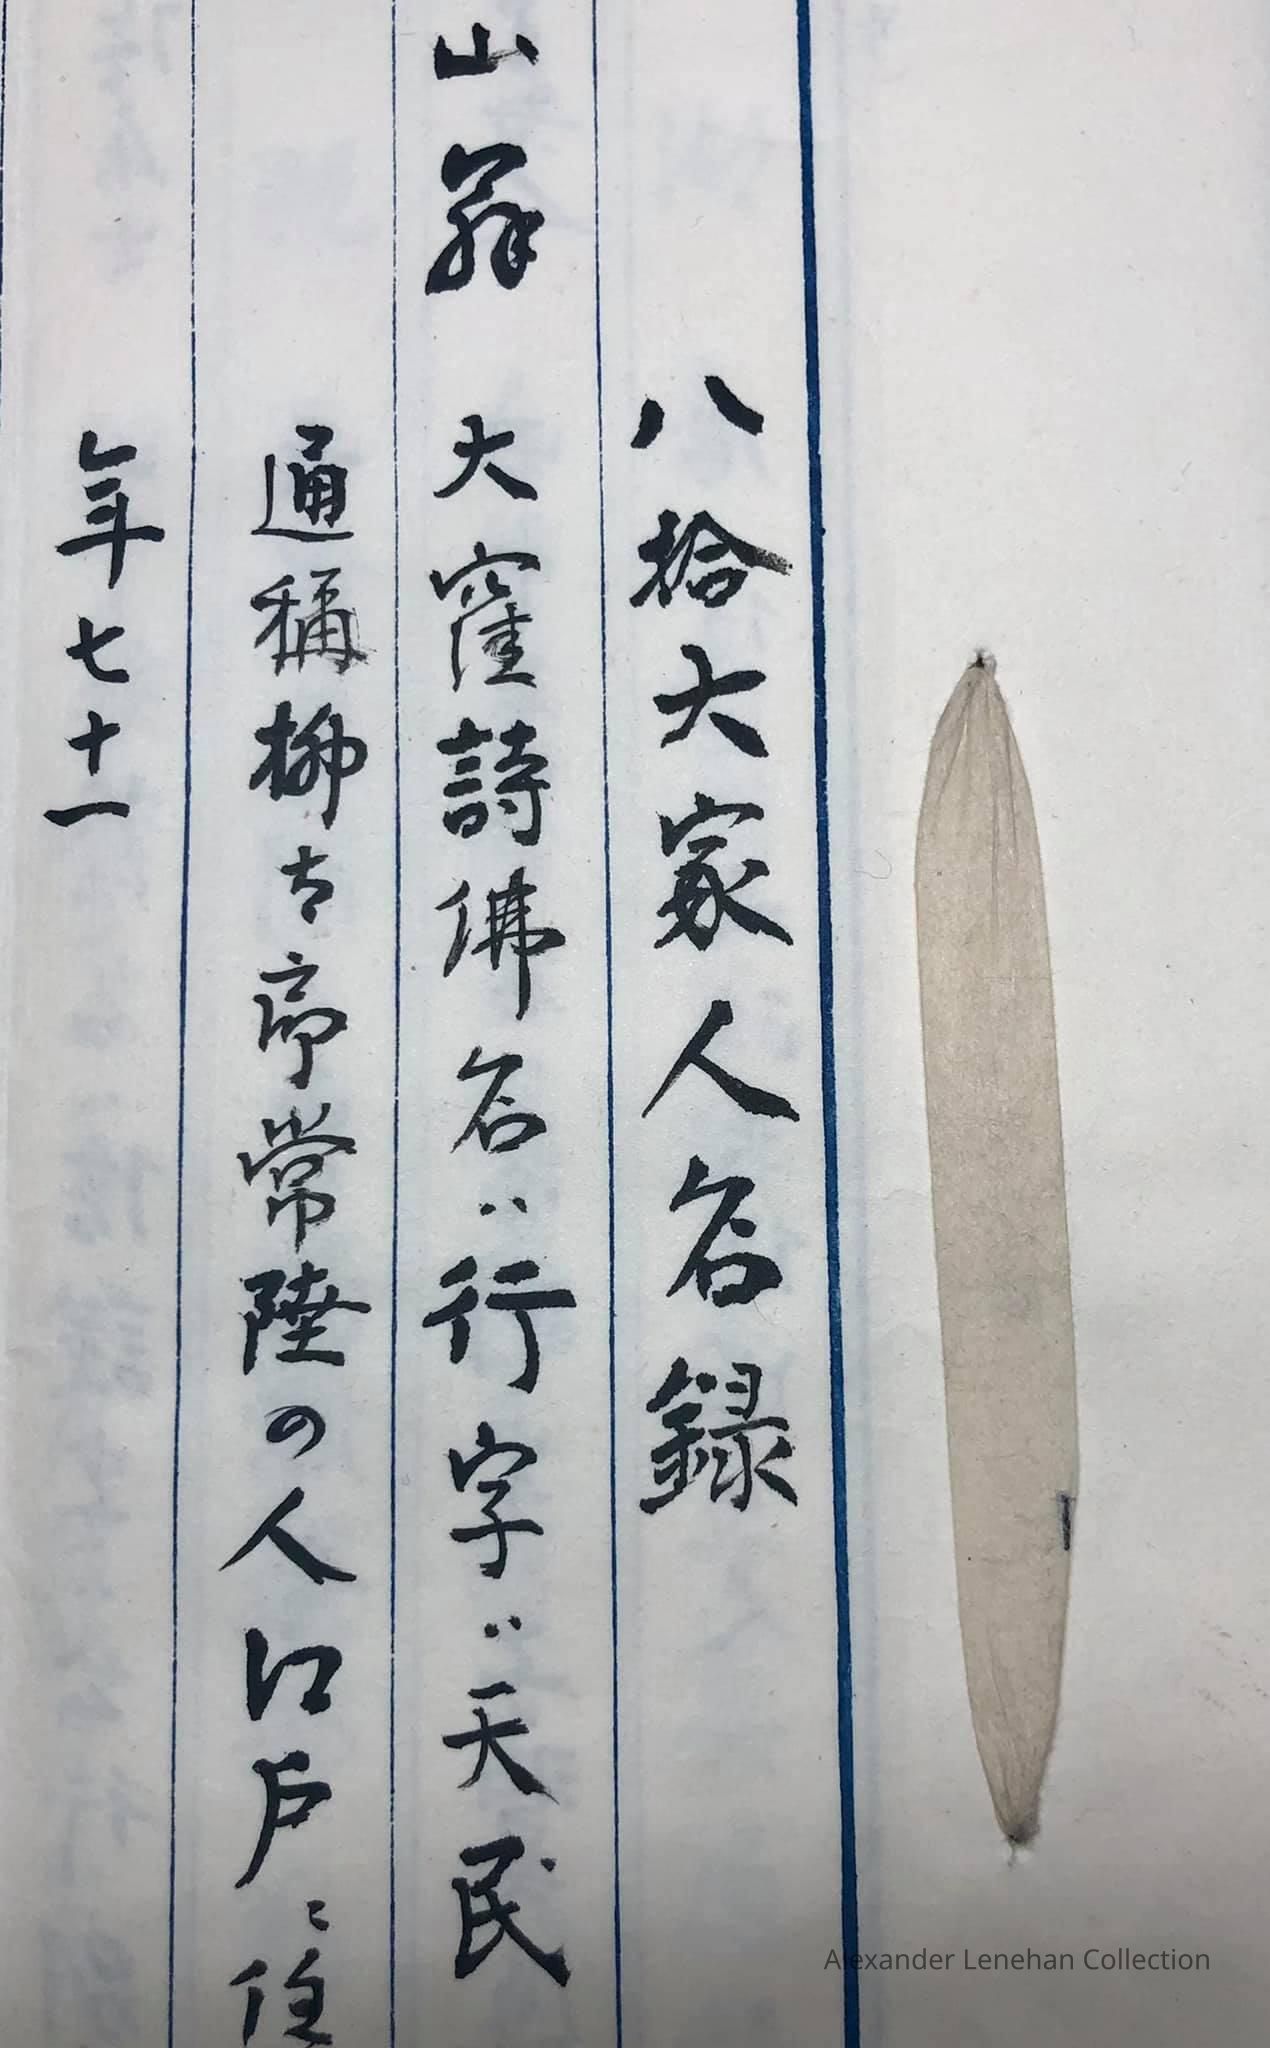 八拾大家人名録
山翁 大窪詩佛名ハ行字ハ天民
通稱柳太郎常陸の人江戸ニ住
年七十一
Alexander Lenehan Collection